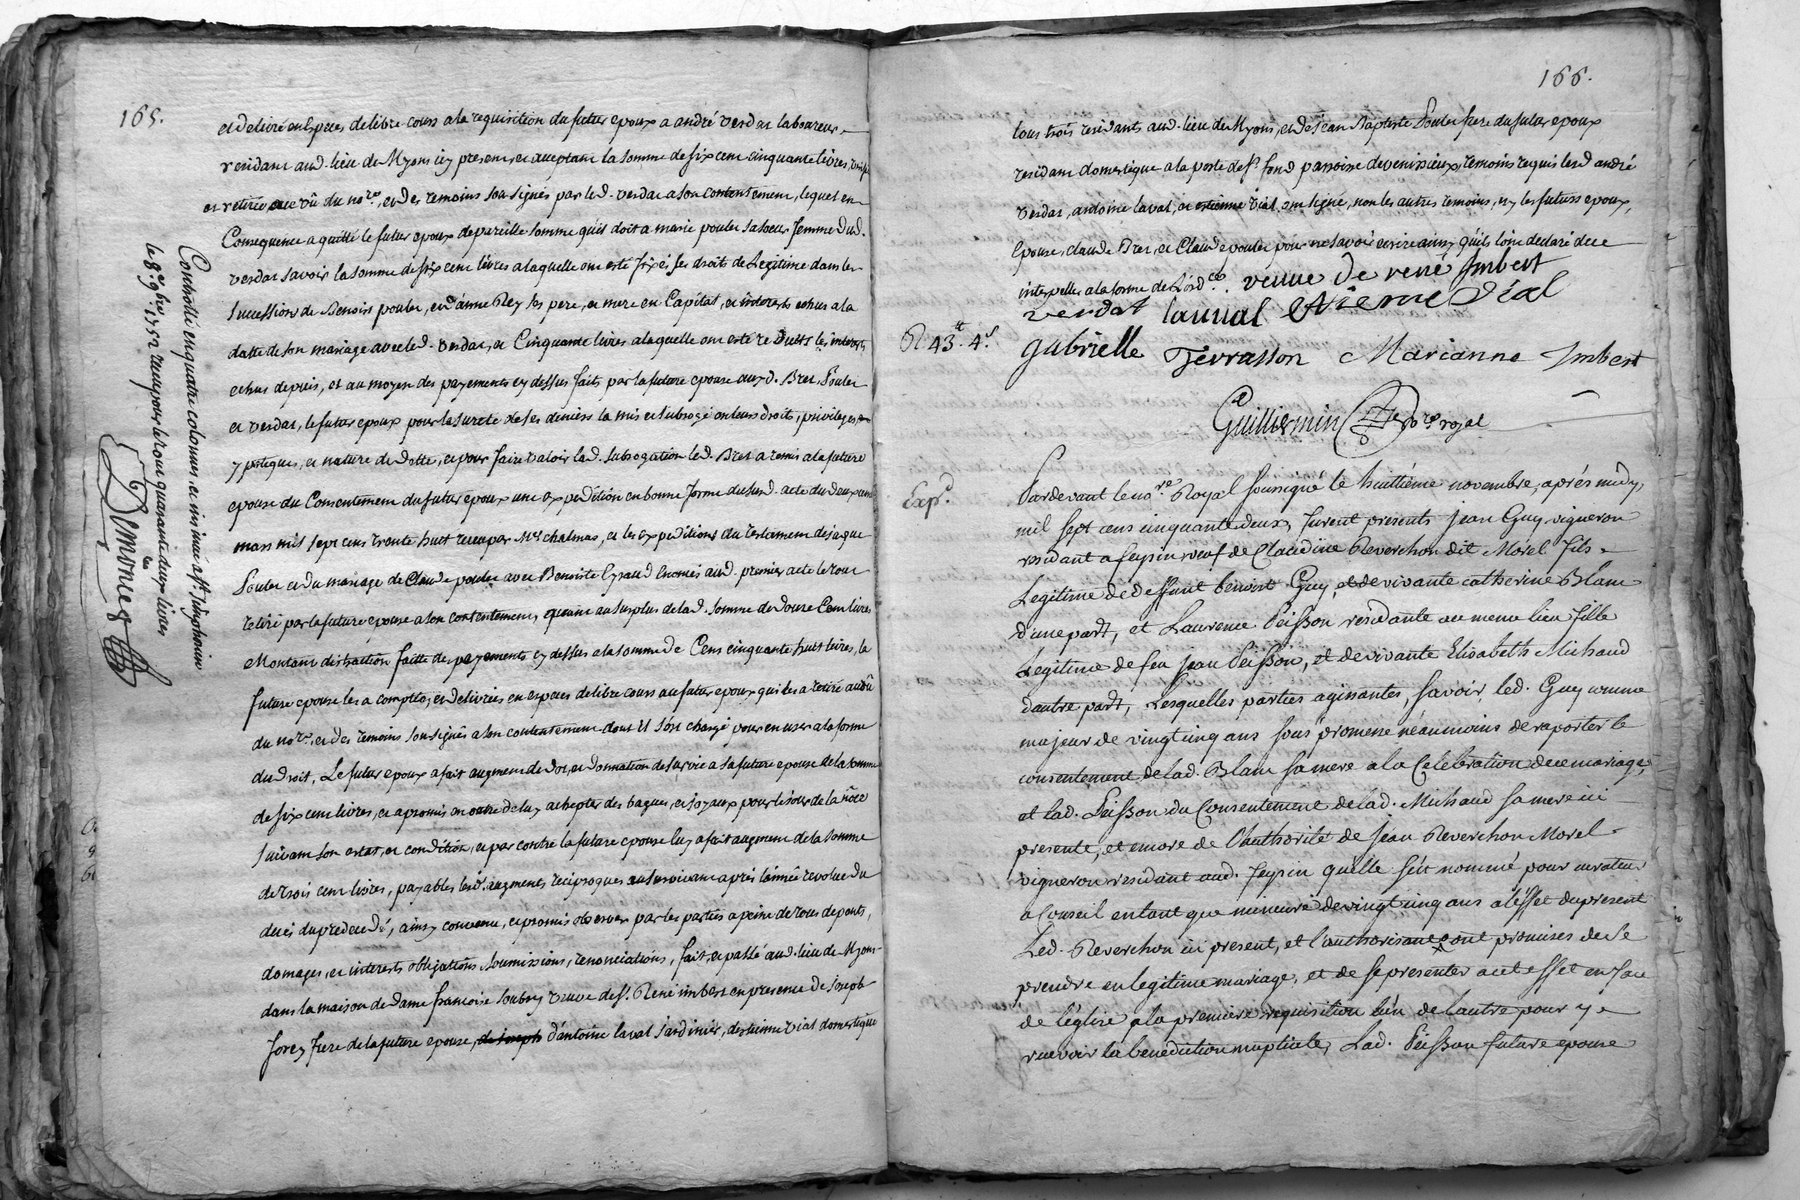 165.
et delivré en Especes de libre cours a la requisition du futur epoux a andré verdat laboureur
residant aud. lieu de Myons icy present et acceptant la somme de six cent cinquante livres
et retirée au vû du no.re, et des temoins sousignés par led. verdat a son contentement, lequel en
Consequence a quitté le futur epoux de pareille somme qu'il doit a marie pouler sa soeur femme dud.
verdat savoir la somme de six cent livres a laquelle ont esté fixés ses droits de Legitime dans les
successions de Benoit pouler, et d'anne Rey ses pere, et mere en Capital, et interests echus a la
datte de son mariage avec led. verdat, et Cinquante livres a laquelle ont esté reduits les interests
echus depuis, et au moyen des payements cy dessus faits par la future epouse auxd. Bret, Pouler
et verdat, le futur epoux pour la sureté de ses deniers la mis et subrogé en leurs droits, privileges
ypoteques, et nature de dette, et pour faire valoir lad. subrogation led. Bret a remis a la future
epouse du Consentement du futur epoux une expedition en bonne forme dususd. acte du deux
mars mil sept cens trente huit receu par M.e chalmas, et les expeditions du testament de jaque
Pouler et du mariage de Claude pouler avec Benoiste Eyraud enoncés aud. premier acte le tout
retiré par la future epouse a son contentement, quant au surplus de lad. somme de douze Cent livres
Montant distraction faitte des payements cy dessus a la somme de Cent cinquante huit livres, la
future epouse les a comptés, et delivrés en especes de libre cours au futur epoux qui les a retiré au vû
du no.re et des temoins sousignés a son contentement dont il s'est chargé pour en user a la forme
du droit, Le futur epoux a fait augment de dot, et donnation de survie a sa future epouse de la somme
de six cent livres, et a promis en outre de luy achepter des bagues, et joyaux pour le jour de la nôce
suivant son estat, et condition, et par contre la future epouse luy a fait augment de la somme
de trois cent livres, payables lesd. augments reciproques au survivant après l'année revolue du
decés du predecedé, ainsy convenu, et promis observer par les parties a peine de tous depents,
domages, et interests obligations soumissions, renonciations, fait, et passé aud. lieu de Myons
dans la maison de dame francoise soubry veuve de s.r René imbert en presence de joseph
forey frere de la future epouse, de joseph d'antoine laval jardinier, d'estienne vial domestique
Controllé en quatre colonnes et insinué a s.t simphorien
le 8.e 9.bre 1752 receu pour le tout quarante deux livres
166.
tous trois residants aud. lieu de Myons, et de jean Baptiste Pouler frere du futur epoux
residant domestique a la poste de s.t fond parroisse de venissieux, temoins requis lesd. andré
verdat, antoine laval, et estienne vial ont signé, non les autres temoins, ny les futurs epoux,
epouse, claude Bret, et Claude pouler pour ne savoir ecrire ainsy qu'ils l'ont declaré de ce
interpellés a la forme de l'ord.ce veuve de rené Imbert
verdat launal etiene vial
R 43.lt 4.s
gabrielle Terrasson Marianne Imbert
Guilliermin no.re royal
Exp.é
Pardevant le no.re Royal soussigné le huittiéme novembre, aprés midy,
mil sept cens cinquante deux, furent presents jean Guy vigneron
residant a feysin veuf de Claudine Reverchon dit Morel fils
Legitime de deffunt benoist Guy, et de vivante catherine Blain
d'une part, et Laurence Peisson residante au meme lieu fille
Legitime de feu jean Peisson, et de vivante Elisabeth Michaud
dautre part, Lesquelles parties agissantes, savoir led. Guy comme
majeur de vingt cinq ans sous promesse néanmoins de raporter le
consentement de lad. Blain sa mere a la Celebration de ce mariage,
et lad. Peisson du Consentement de lad. Michaud sa mere ici
presente, et encore de l'authorité de jean Reverchon Morel
vigneron residant aud. feysin qu'elle s'est nommé pour curateur
a Conseil en tant que mineure de vingt cinq ans a l'effet du present
Led. Reverchon ici present, et l'authorisant ont promises de se
prendre en legitime mariage, et de se presenter a cet effet en face
de l'église a la premiere requisition l'un de lautre pour y
recevoir la benediction nuptiale, Lad. Peisson future epouse